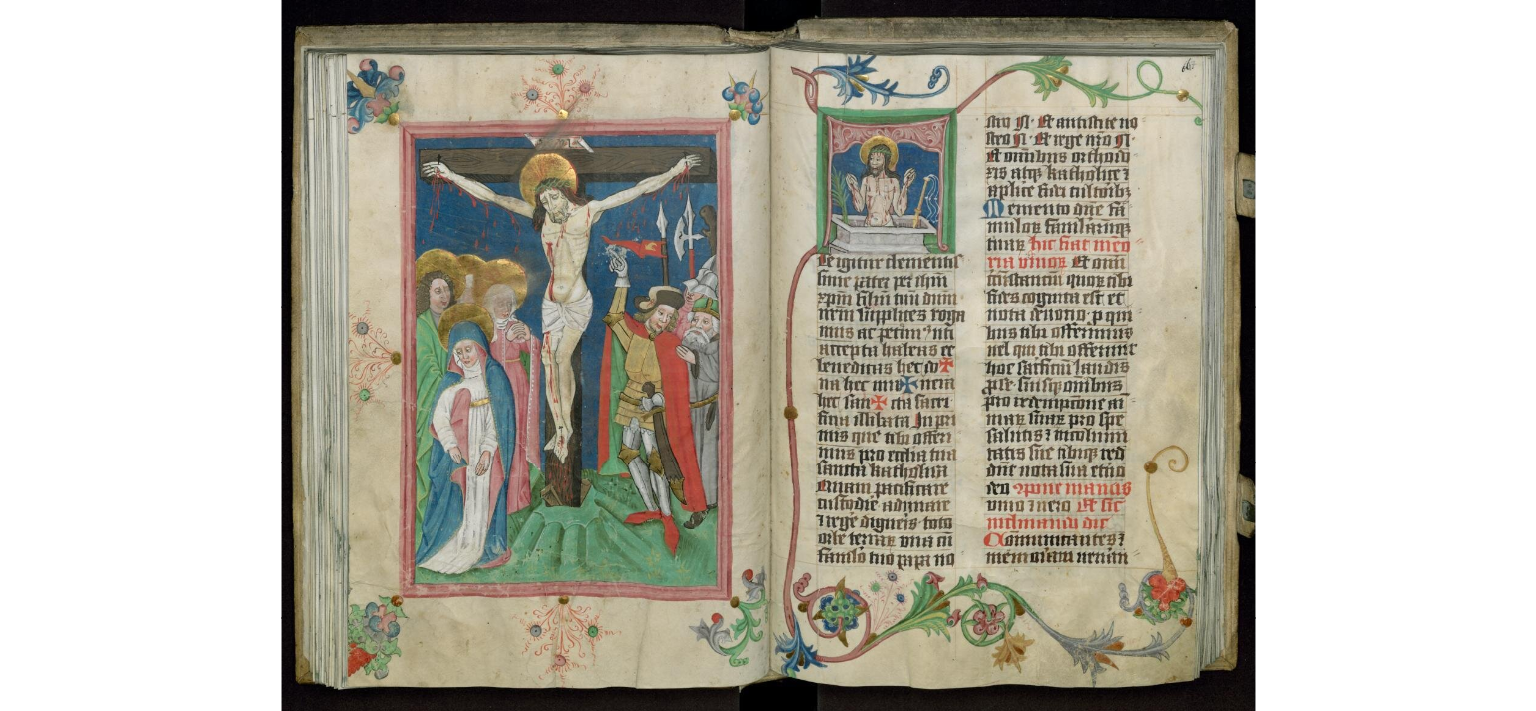 Te igitur clementis
sime pater per ihm
xpm filiu tuu dnm
nrm supplices roga
mus ac petim9 uti
accepta habeas et
benedicas hec do✠
na hec mu✠nera
hec san✠cta sacri
ficia illibata In pri
mis que tibi offeri
mus pro ecclia tua
sancta katholica
Quam pacificare
custodire adunare
⁊ regē digneris toto
orbe terraꝝ una cū
famlo tuo papa nō
stro N. Et antistite no
stro N. Et rege nrō N.
Et omībus orthodo
xis atqꝫ katholice ⁊
aplice fidei cultoribꝫ
Memento dne fa
muloꝝ famularūqꝫ
tuaꝝ hic fiat meo
ria vivoꝝ Et omī
circūstanciū quoꝝ tibi
fides cognita est et
nota devotio p qui
bus tibi offerimus
vel qui tibi offerunt
hoc sacficiū laudis
p se suisqꝫ omībus
pro redempcione ai
maꝝ suaꝝ pro spe
salutis ⁊ incolumi
tatis sue tibiqꝫ red
dūt vota sua etno
deo
vivo ⁊ vero Et sic
inclinando dic
Comunicantes ⁊
memoriam venerā